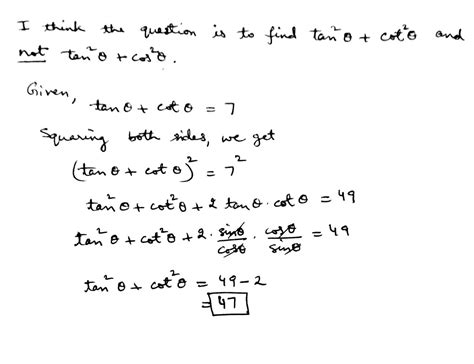 I think the question is to find tan²θ + cot²θ and
not tan²θ + cos²θ.
Given,
tanθ + cotθ = 7
Squaring both sides, we get
(tanθ + cotθ)² = 7²
tan²θ + cot²θ + 2 tanθ · cotθ = 49
tan²θ + cot²θ + 2 · sinθ/cosθ · cosθ/sinθ = 49
tan²θ + cot²θ = 49 - 2
= 47